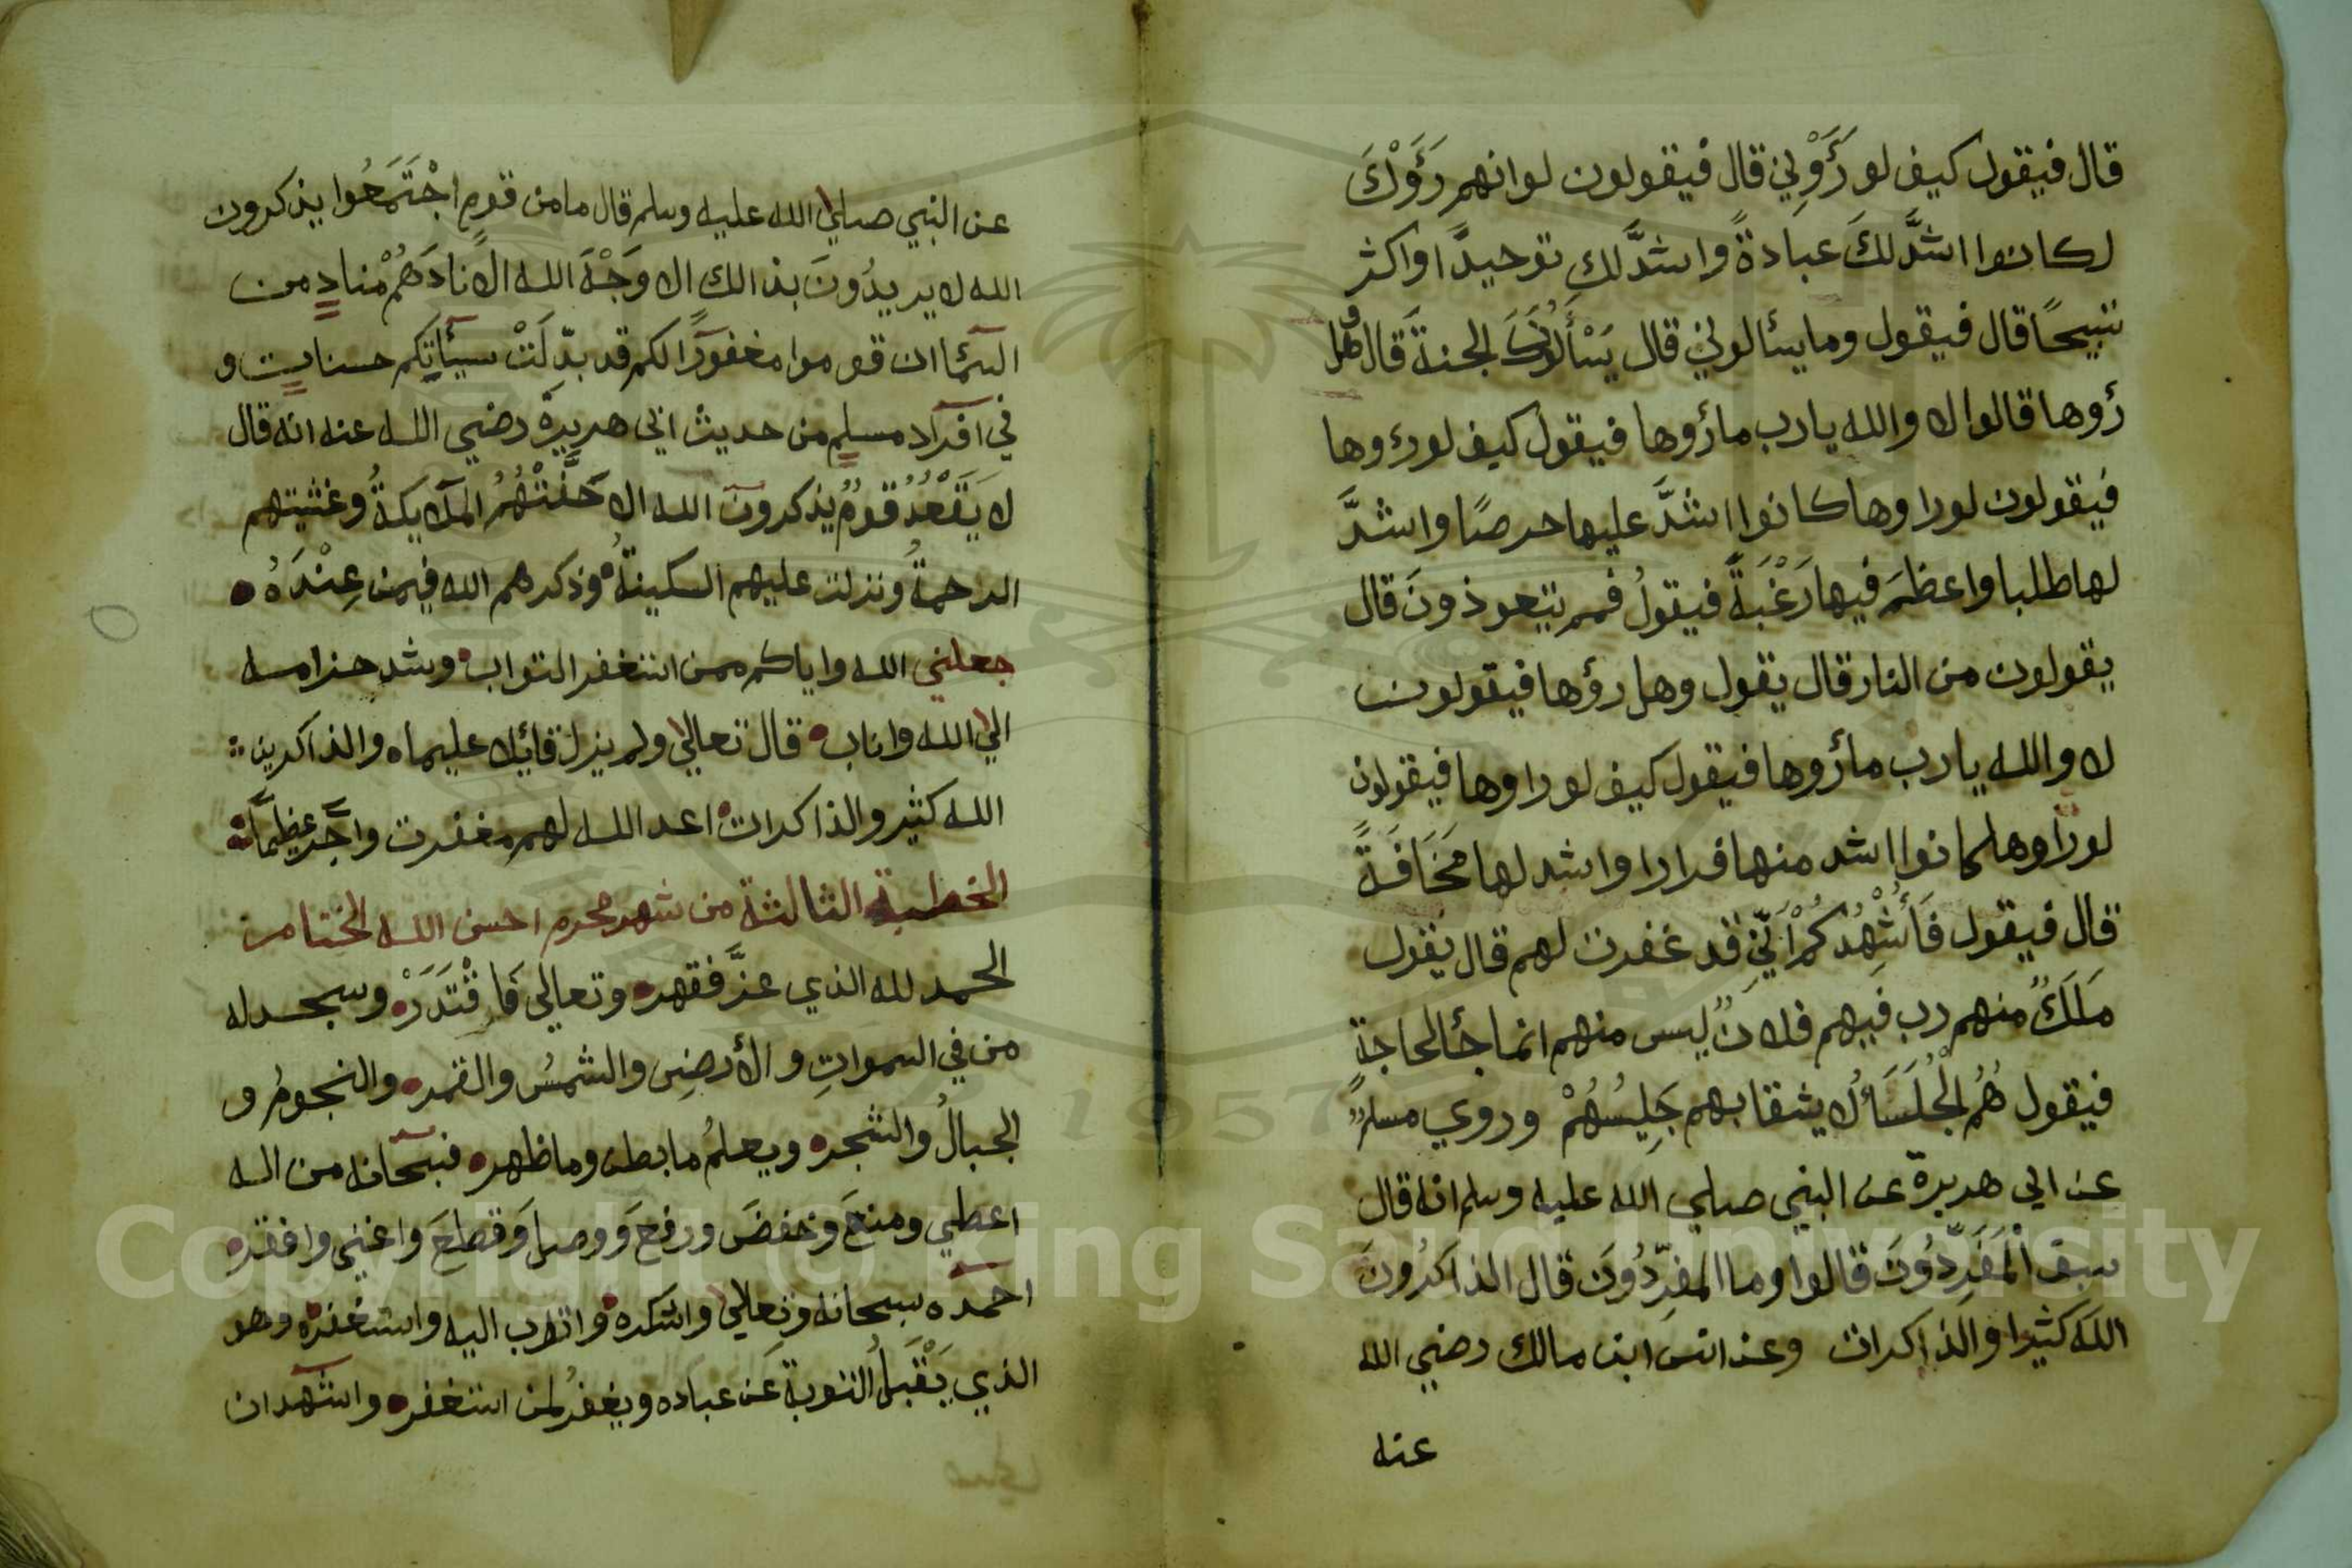 قال فيقول كيف لو رَؤَوْنِي قال فيقولون لو انهم رَؤَوْكَ
لكانوا اشدَّ لكَ عبادةً واشدَّ لك توحيدًا واكثر
تسبيحًا قال فيقول وما يسألوني قال يَسْألُونَكَ الجنة قال وهل
رؤوها قالوا لا والله يا رب ما رؤوها فيقول كيف لو رءوها
فيقولون لو راوها كانوا اشدَّ عليها حرصًا واشدَّ
لها طلبا واعظمَ فيها رَغْبَةً فيقولُ فمم يتعوذونَ قال
يقولون من النار قال يقول وهل رؤها فيقولون
لا والله يا رب ما رؤوها فيقول كيف لو راوها فيقولون
لو راوها لكانوا اشد منها فرارا واشد لها مَخَافَةً
قال فيقول فَأُشْهِدُكُمْ أَنِّي قد غفرت لهم قال يقول
مَلَكٌ منهم رب فيهم فلانٌ ليس منهم انما جأ لحاجةٍ
فيقول هُمُ الْجُلَسَأُ لا يشقا بهم جَلِيسُهُمْ وروي مسلمٌ
عن ابي هريرة عن النبي صلي الله عليه وسلم انه قال
سبق الْمُفَرِّدُونَ قالوا وما المفرِّدُونَ قال الذاكرُونَ
اللهَ كثيرا والذاكرات وعن انس ابن مالك رضي الله
عنه
عن النبي صلي الله عليه وسلم قال ما من قومٍ اجْتَمَعُوا يذكرون
الله لا يريدُونَ بذالك الا وَجْهَ الله الا نادَهُمْ منادٍ من
السَّمَا ان قوموا مغفورًا لكم قد بدِّلَتْ سيئَاتِكم حسناتٍ و
في افراد مسلمٍ من حديث ابي هريرة رضي الله عنه انه قال
لا يَقْعُدُ قومٌ يذكرون الله الا حَفَّتْهُمُ الملايكةُ وغشيتهم
الرحمةُ ونزلت عليهم السكينةُ وذكرهم الله فيمن عِنْدَهُ
جعلني الله واياكم ممن استغفر التواب وشد حزامه
الي الله واناب قال تعالي ولم يزل قائلا عليما والذاكرين
الله كثير والذاكرات اعد الله لهم مغفرت واجر عظيما
الخطبة الثالثة من شهر محرم احسن الله الختام
الحمد لله الذي عزَّ فقهر وتعالي فَاقْتَدَرْ وسجد له
من في السمواتِ والأرضِ والشمسُ والقمر والنجومُ و
الجبالُ والشجر ويعلمُ ما بطن وما ظهر فسبحانه من اله
اعطي ومنعَ وخفضَ ورفعَ ووصلَ وقطعَ واغني وافقر
احمده سبحانه وتعالي واشكره واتوب اليه واستغفره وهو
الذي يَقْبَلُ التوبةَ عَن عباده ويغفرُ لمن استغفر واشهد ان